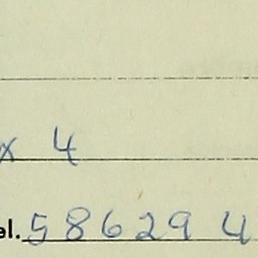 x 4
el. 586294